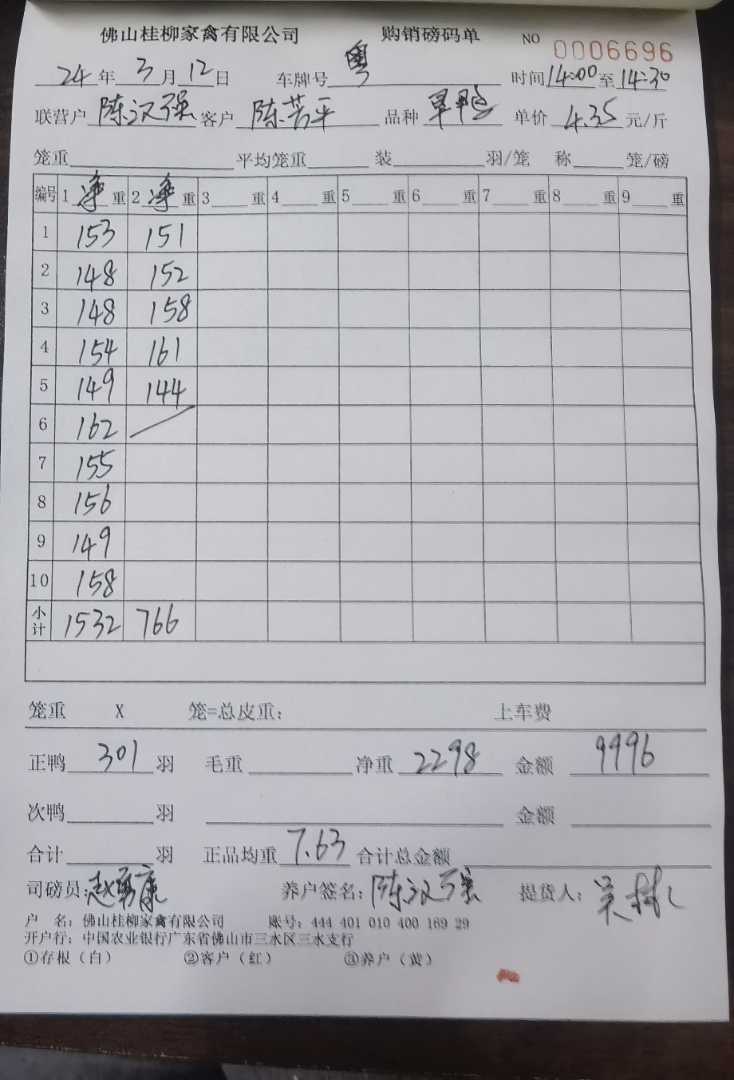 佛山桂柳家禽有限公司 购销磅码单 NO 0006696
24年3月12日 车牌号 粤 时间14:00至14:30
联营户 陈汉强 客户 陈芳平 品种 旱鸭 单价 4.35 元/斤
笼重 平均笼重 装 羽/笼 称 笼/磅
编号 1 净 重 2 净 重 3 重 4 重 5 重 6 重 7 重 8 重 9 重
1 153 151
2 148 152
3 148 158
4 154 161
5 149 144
6 162
7 155
8 156
9 149
10 158
小计 1532 766
笼重 X 笼=总皮重: 上车费
正鸭 301 羽 毛重 净重 2298 金额 9996
次鸭 羽 金额
合计 羽 正品均重 7.63 合计总金额
司磅员: 赵勇康 养户签名: 陈汉强 提货人: 吴
户 名: 佛山桂柳家禽有限公司 账号: 444 401 010 400 169 29
开户行: 中国农业银行广东省佛山市三水区三水支行
①存根(白) ②客户(红) ③养户(黄)